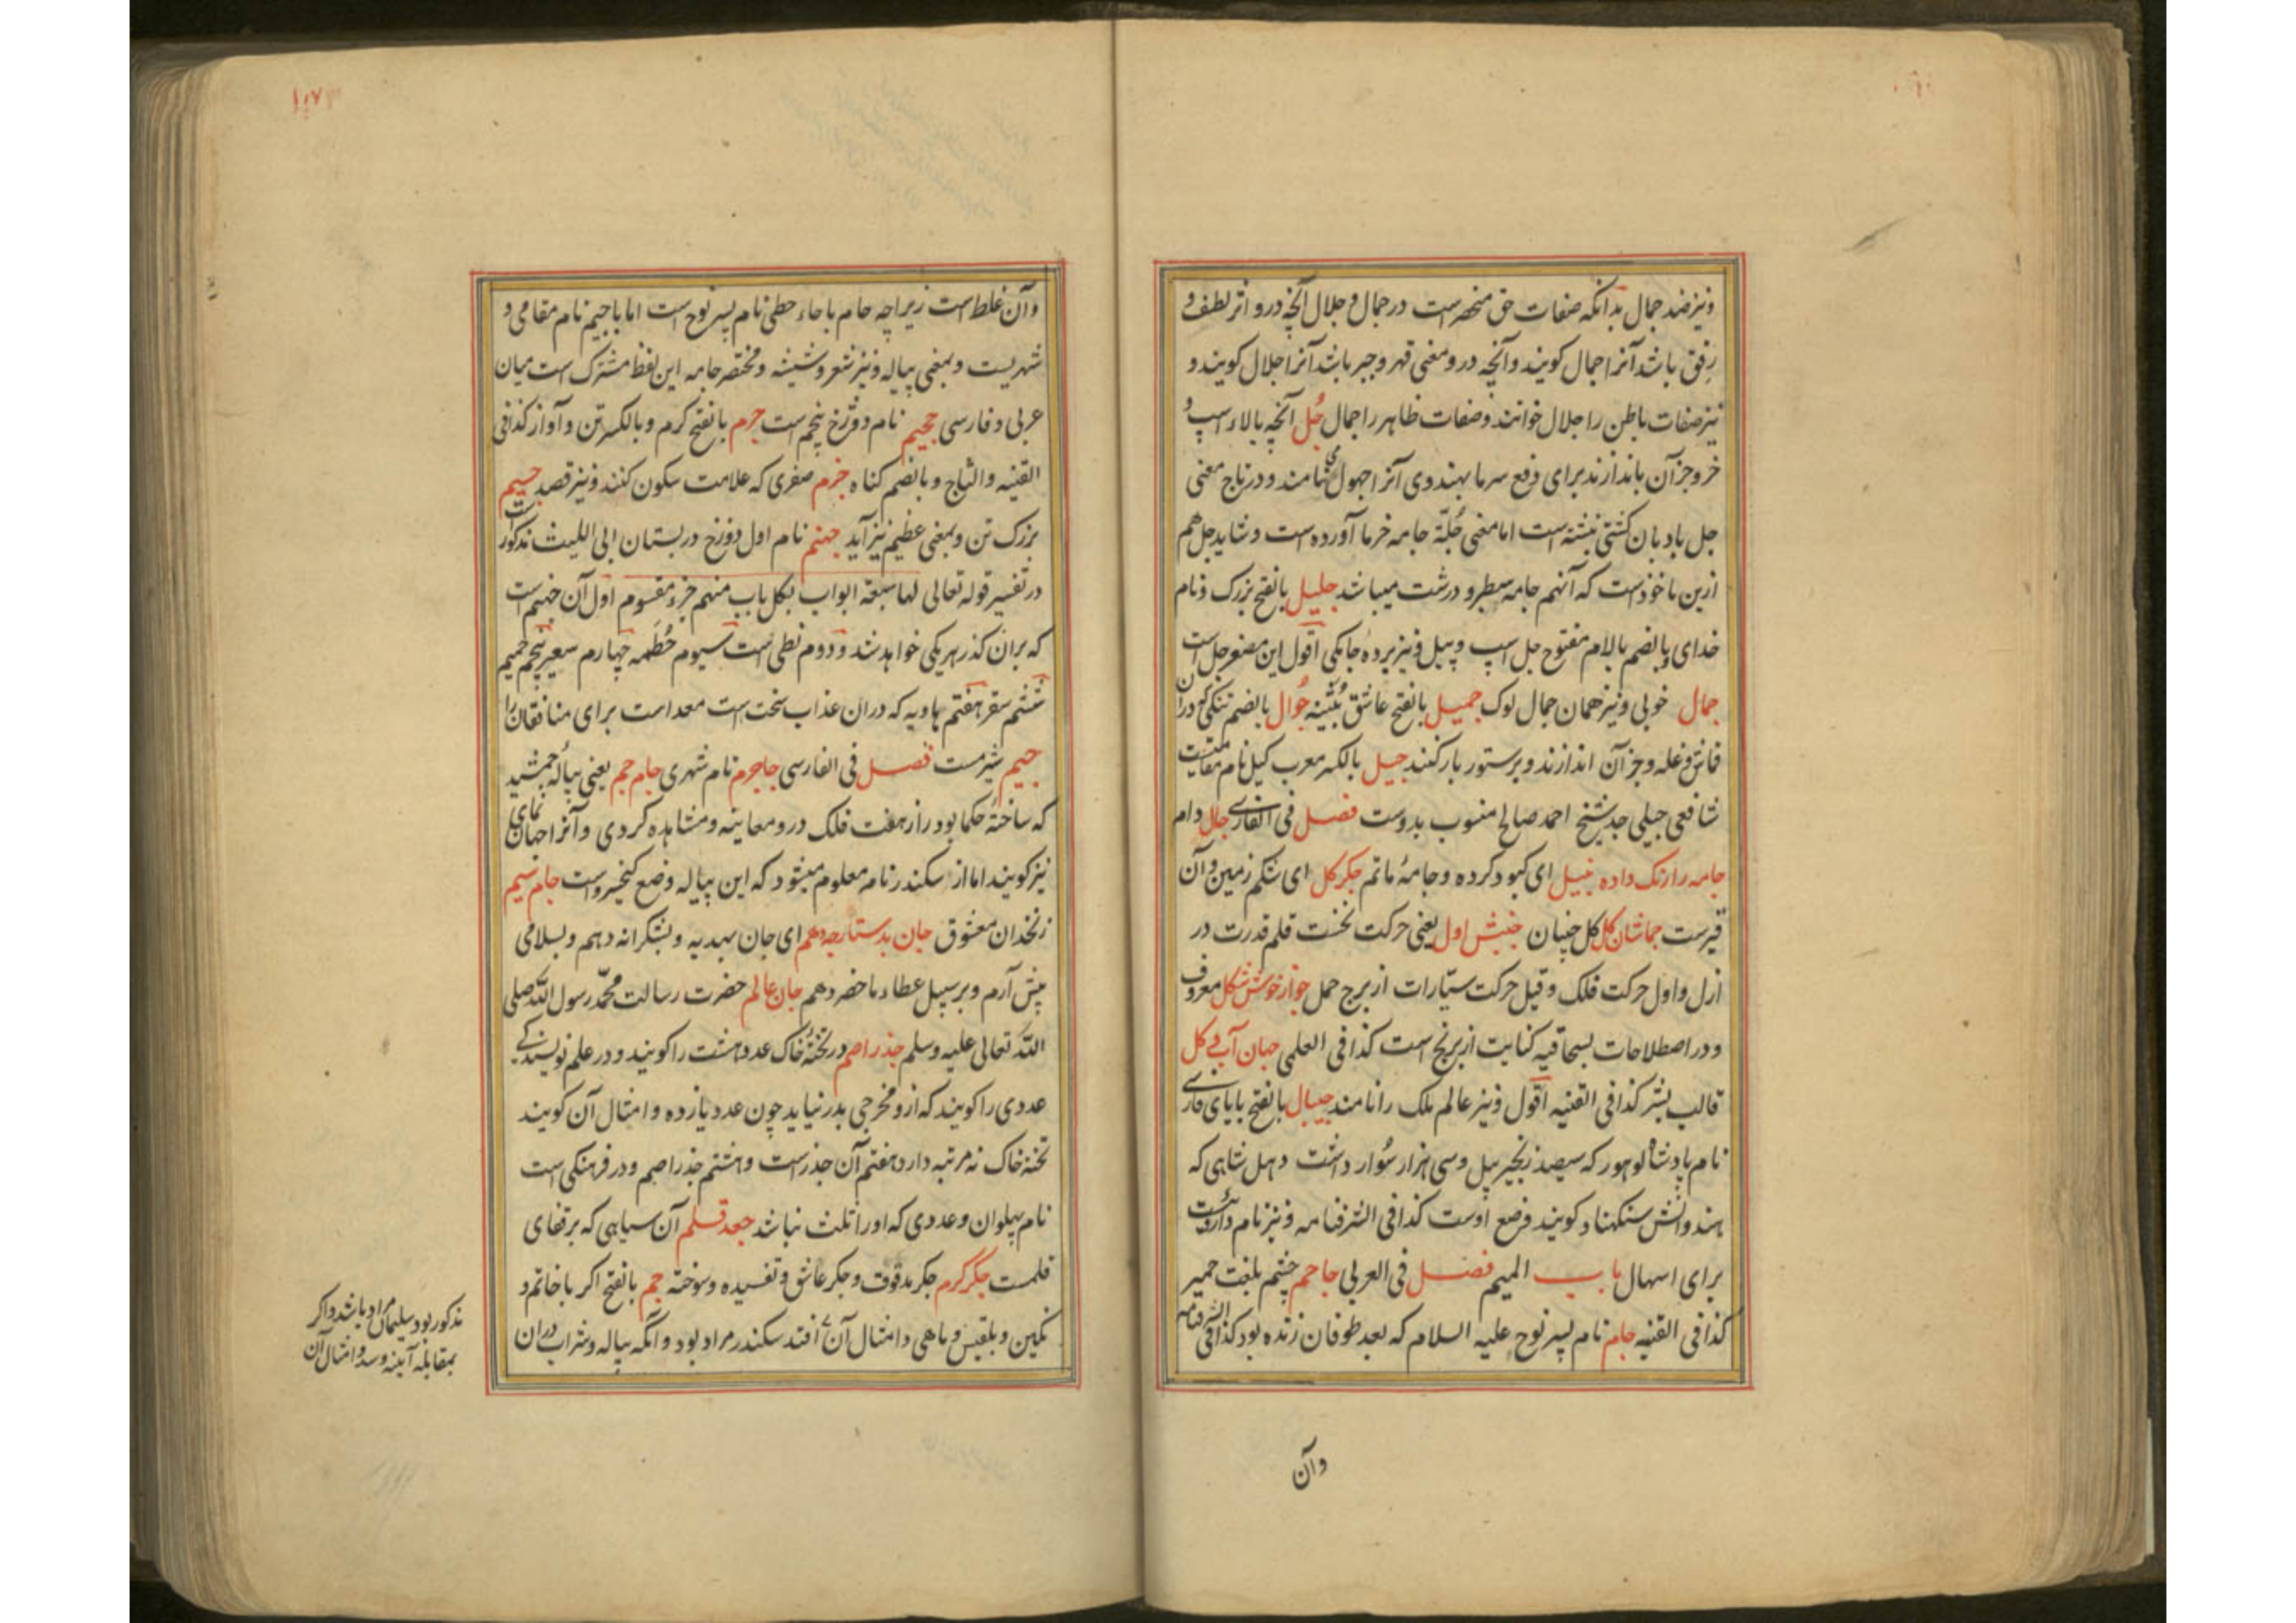 ونیز ضد جمال بدآنکه صفات حق منحصرست در جمال و جلال آنچه درو اثر لطف و
رفق باشد آنرا جمال کویند وآنچه درو معنی قهر و جبر باشد آنرا جلال کویند و
نیز صفات باطن را جلال خوانند وصفات ظاهر را جمال جُل آنچه بالاء اسپ و
خر و جز آن باندازند برای دفع سرما بهندوی آنرا جهول نامند و در تاج معنی
جل بادبان کشتی نبشته است اما معنی جُلّة جامه خرما آورده است و شاید جل هم
ازین ماخوذست که آنهم جامه سطبر و درشت میباشد جلیل بالفتح بزرک و نام
خدای و بالضم بالام مفتوح جل اسپ و پیل و نیز پرده جامکی اقول این مصغر جل است
جمال خوبی و نیز همان جمال لوک جمیل بالفتح عاشق بُثینه جُوال بالضم تنکی که دران
قماش وغله وجز آن اندازند و برستور بار کنند جیل بالکسر معرب کیل نام مقامیست
شافعی جیلی جد شیخ احمد صالح منسوب بدوست فصل فی الفارسی جال دام
جامه را رنک داده نیل ای کبود کرده و جامهٔ ماتم جکر کل ای شکم زمین و آن
قبرست جماشان کل کل چینان جنبش اول یعنی حرکت نخست قلم قدرت در
ازل و اول حرکت فلک و قیل حرکت ستیارات از برج حمل جواز خوش شکل معروف
و در اصطلاحات بسحاقیه کنایت از برنج است کذا فی العلمی جهان آب و کل
قالب بشر کذا فی القنیه اقول و نیز عالم ملک را نامند جیپال بالفتح بابای فارسی
نام پادشاه لوهور که سیصد زنجیر پیل و سی هزار سُوار داشت و هل شاهی که
هندوانش سنکهناد کویند وضع اوست کذا فی الشرفنامه و نیز نام داروئیست
برای اسهال باب المیم فصل فی العربی جاحم چشم بلغت حمیر
کذا فی القنیه جام نام پسر نوح علیه السلام که بعد طوفان زنده بود کذا فی الشرفنامه
وآن
وآن غلط است زیراچه حام با حاء حطی نام پسر نوح است اما با جیم نام مقامی و
شهریست و بمعنی پیاله و نیز شعر و شیشه و مختصر جامه این لفظ مشترک است میان
عربی و فارسی جحیم نام دوزخ پنجم است جرم بالفتح کرم و بالکسر تن و آواز کذا فی
القنیه والتاج و بالضم کناه جزم صفری که علامت سکون کنند و نیز قصد جسیم
بزرک تن و بمعنی عظیم نیز آید جهنم نام اول دوزخ در بستان ابی اللیث مذکورست
در تفسیر قوله تعالی لها سبعة ابواب لکل باب منهم جزء مقسوم اول آن جهنم است
که بران کذر هر یکی خواهد شد و دوم لظی است سیوم حُطَمه چهارم سعیر پنجم جحیم
ششم سقر هفتم هاویه که دران عذاب سخت است معد است برای منافقان را
جیم شتر مست فصل فی الفارسی جاجرم نام شهری جام جم یعنی پیالهٔ جمشید
که ساختهٔ حکما بود راز هفت فلک درو معاینه و مشاهده کردی و آنرا جهان نمای
نیز کویند اما از سکندرنامه معلوم میشود که این پیاله وضع کیخسروست جام سیم
زنخدان معشوق جان بدستارچه دهم ای جان بهدیه و بشکرانه دهم و بسلامی
پیش آرم و بر سبیل عطاء ماحضر دهم جان عالم حضرت رسالت محمّد رسول الله صلی
الله تعالی علیه وسلم جذر اصم در تختهٔ خاک عدد هشت را کویند و در علم نویسندکی
عددی را کویند که ازو مخرجی بدر نیاید چون عدد یازده و امثال آن کویند
تخته خاک نه مرتبه دارد هفتم آن جذرست و هشتم جذر اصم و در فرهنکی است
نام پهلوان و عددی که اورا ثلث نباشد جعد قلم آن سیاهی که بر قفای
قلمست جکر کرم جکر مدقوق و جکر عاشق و تفسیده و سوخته جم بالفتح اکر با خاتم و
نکین و بلقیس و ماهی و امثال آن افتد سکندر مراد بود و آنکه پیاله و شراب دران
مذکور بود سلیمان مراد باشد و اکر
بمقابله آیینه و سد و امثال آن